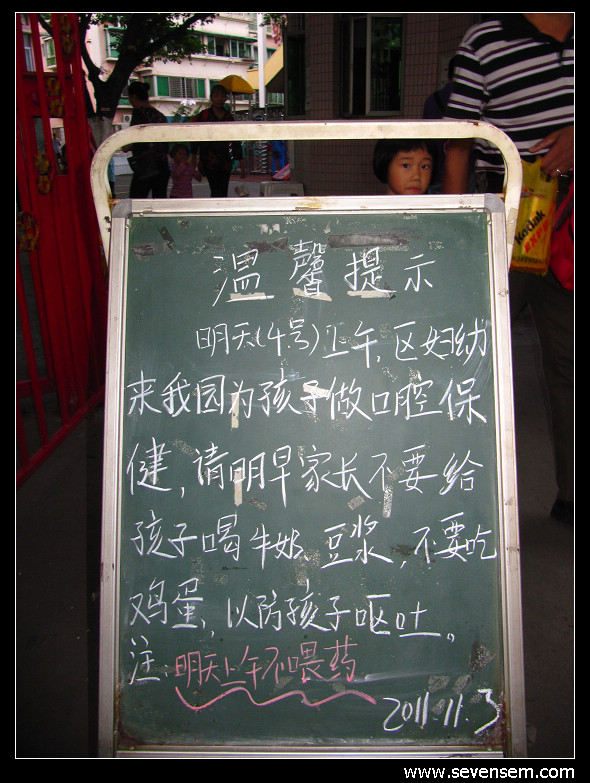 温馨提示
明天(4号)上午,区妇幼
来我园为孩子做口腔保
健,请明早家长不要给
孩子喝牛奶、豆浆,不要吃
鸡蛋,以防孩子呕吐。
注:明天上午不喂药.
2011.11.3
Kodak
EXPRESS
www.sevensem.com